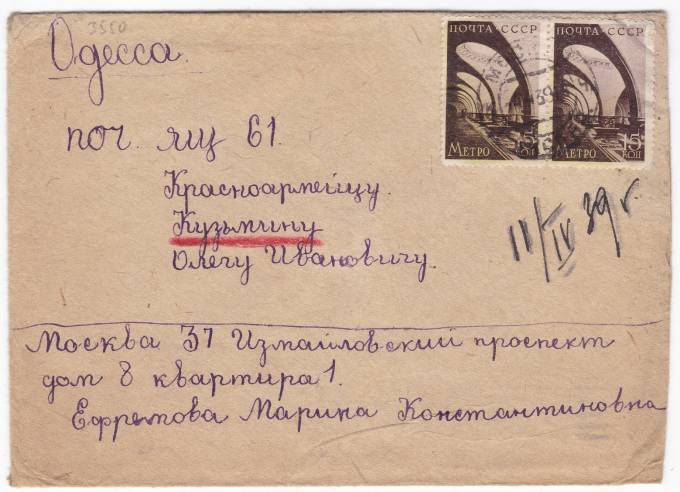 3550
Одесса.
ПОЧТА СССР
ПОЧТА СССР
39
15 КОП
МЕТРО
15 КОП
МЕТРО
поч. ящ 61.
Красноармейцу.
Кузьмину
Олегу Ивановичу.
11/IV 39 г.
Москва 37 Измайловский проспект
дом 8 квартира 1.
Ефремова Марина Константиновна